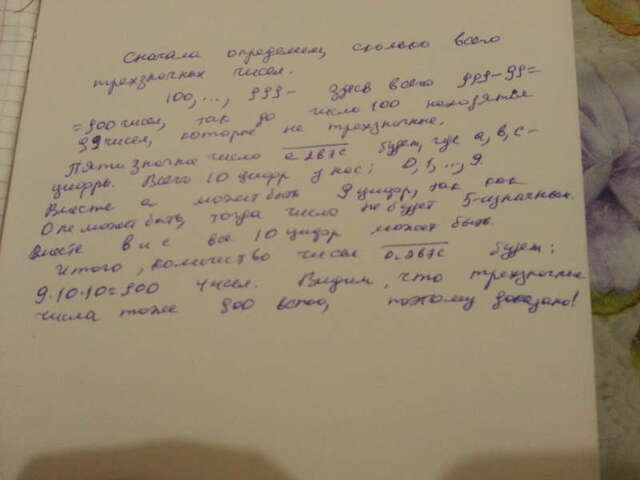 Сначала определем, сколько всего
трехзначных чисел.
100, ..., 999 - здесь всего 999-99=
=900 чисел, так до число 100 находятся
99 чисел, которые не трехзначные.
Пятизначное число a2b7c будем, где a, b, c -
цифры. Всего 10 цифр у нас; 0, 1, ..., 9.
Вместе a может быть 9 цифр, так как
0 не может быть, тогда число не будет 5-изначным.
Вместе b и c все 10 цифр может быть.
Итого, количество чисел a2b7c будем;
9·10·10=900 чисел. Видим, что трехзначные
числа тоже 900 всего, поэтому доказано!